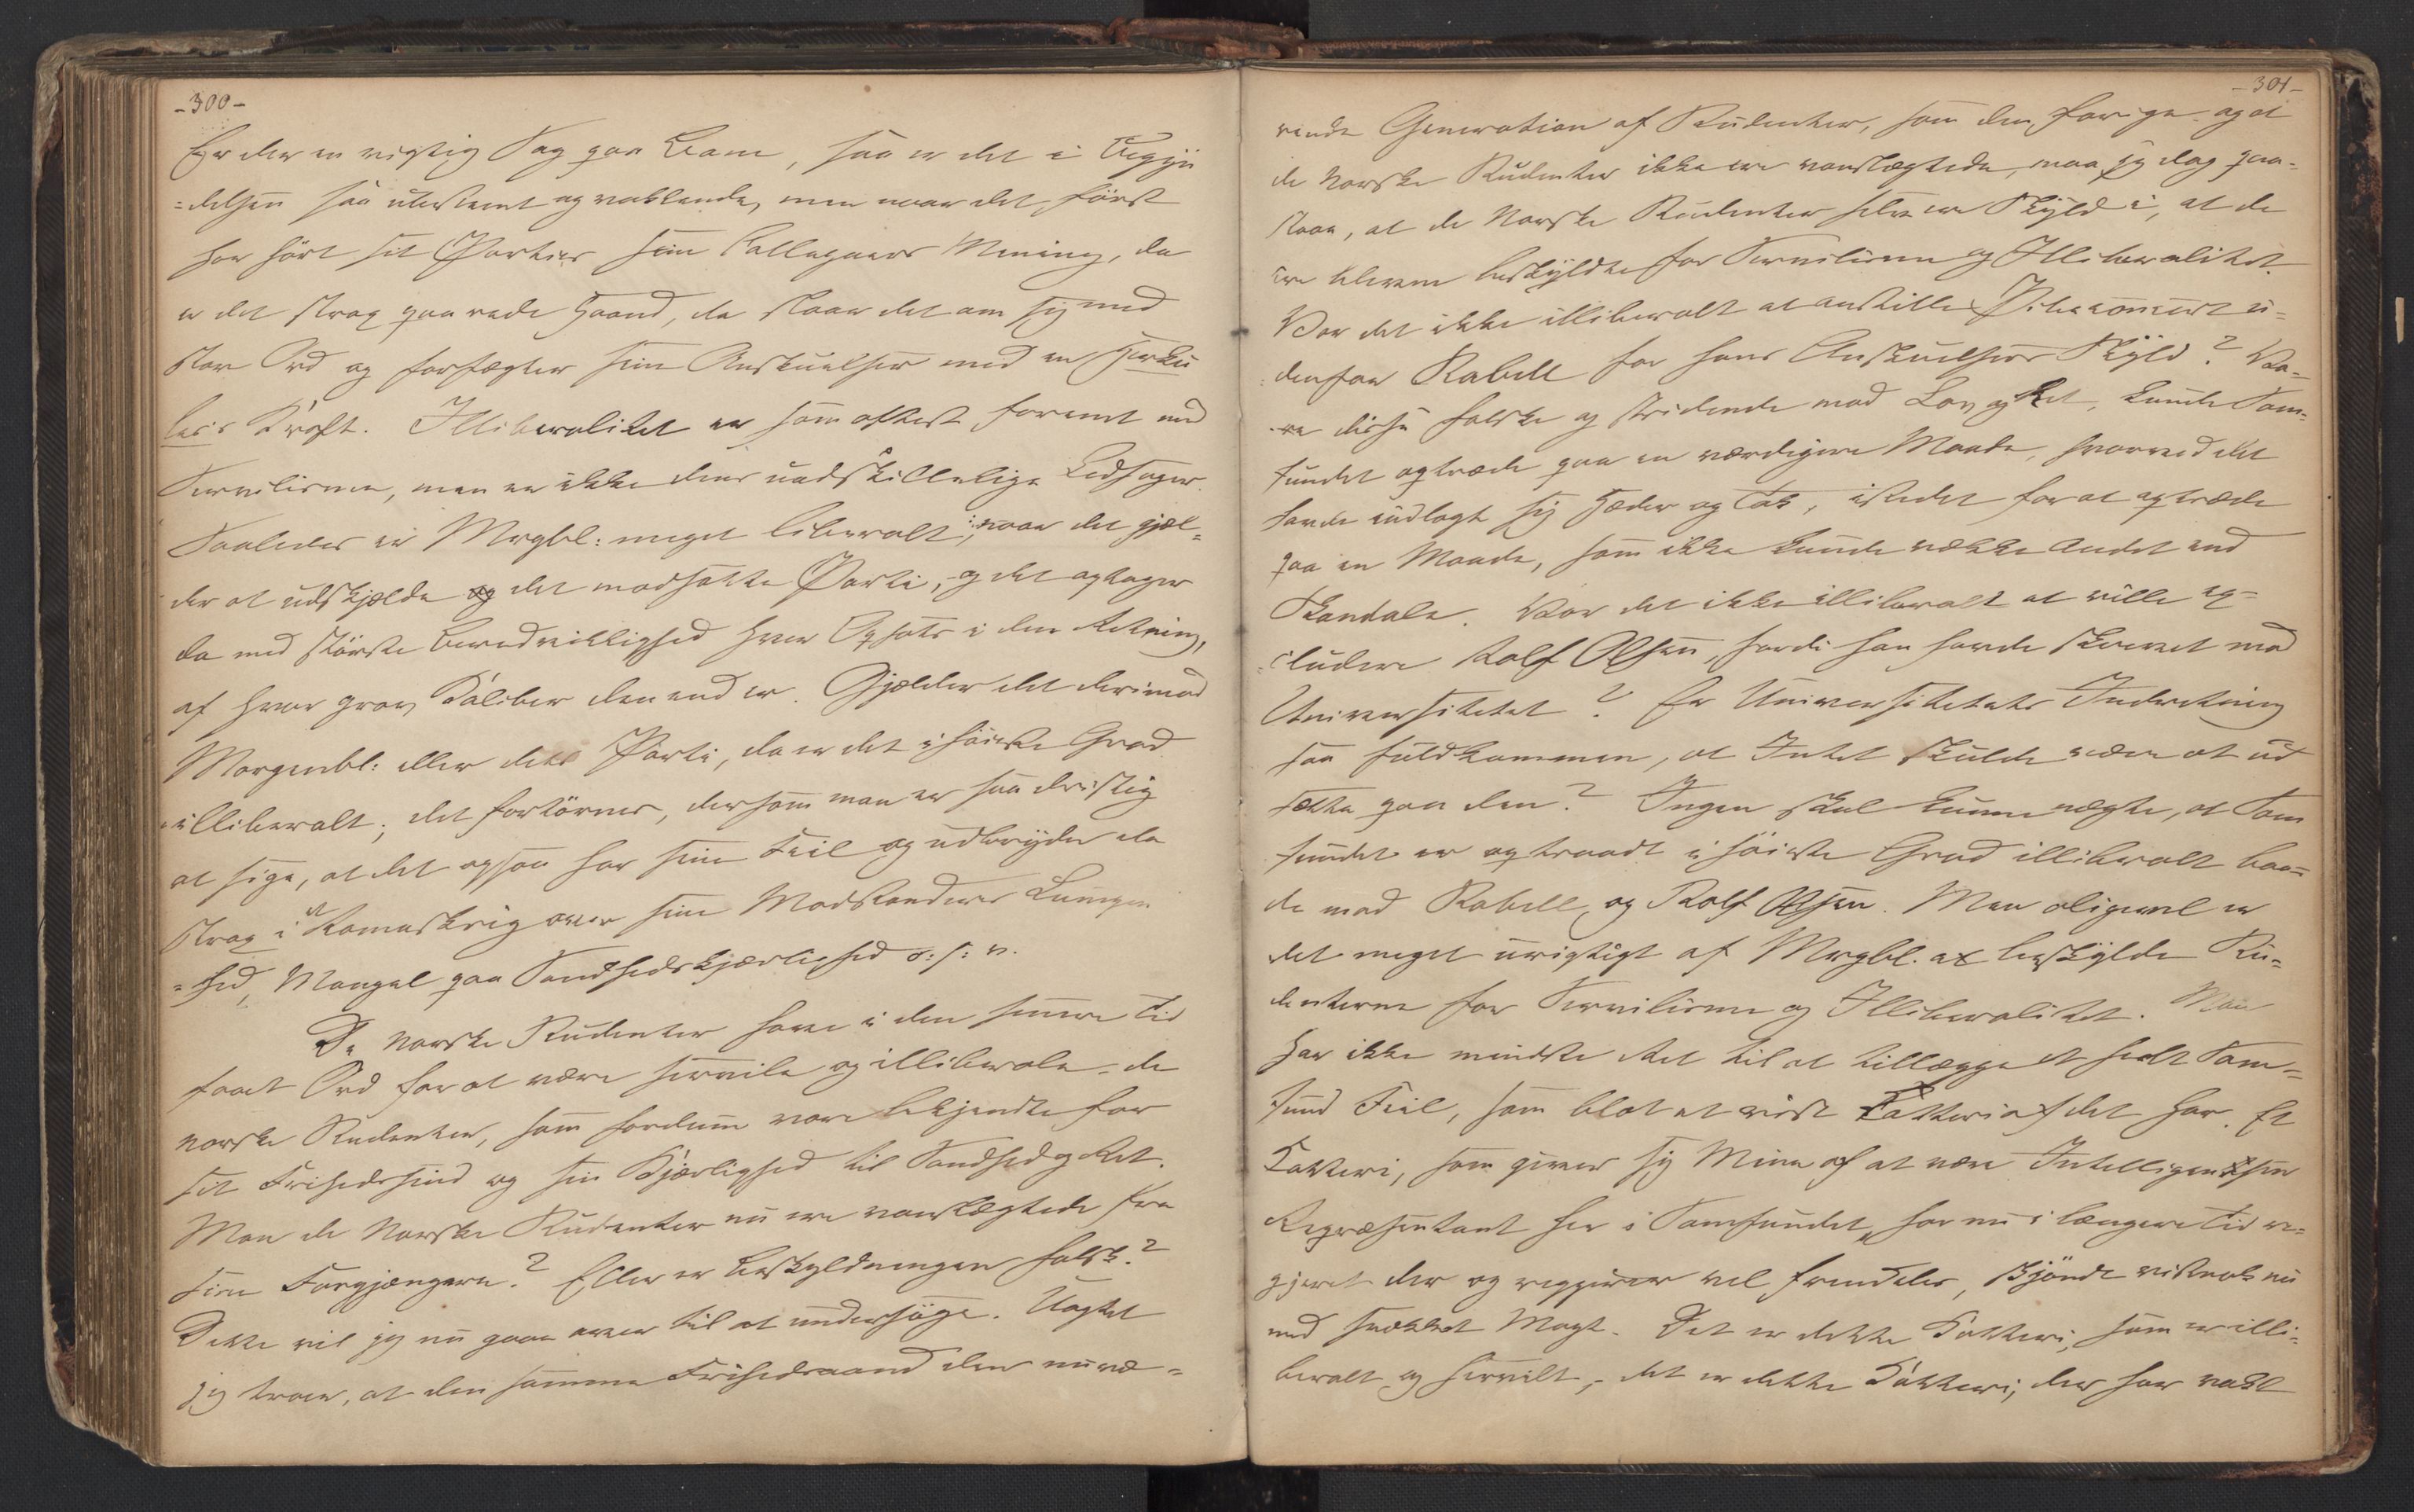 -300-
Er der en vigtig Sag paa Bane, saa er det i Begyn
=delsen saa ubestemt og vaklende, men naar det först
har hört sit Parties sine Kollegaers Mening, da
er det strax paa rede Haand, da slaaer det om sig med
store Ord og forfægter sine Anskuelser med en Herku
les's Kraft. Illiberalitet er som oftest forenet med
Servilisme, men er ikke dens uadskillelige Ledsager.
Saaledes er Mrgbl: meget liberalt, naar det gjæl-
der at udskjælde det modsatte Parti, og det optager
da med störste Beredvillighed hver Opsats i den Retning,
af hvor grov Kaliber den end er. Gjælder det derimod
Morgenbl: eller dets Parti, da er det i höieste Grad
illiberalt; det fortörnes, dersom man er saa dristig
at sige, at det ogsaa har sine Feil og udbryder da
strax i et Ramaskrig over sine Modstanderes Lumpen
=hed, Mangel paa Sandhedskjærlighed o: s: v.
De norske Studenter have i den senere Tid
faaet Ord for at være servile og illiberale - de
norske Studenter, som fordum vare bekjendte for
sit Frihedssind og sin Kjærlighed til Sandhed og Ret.
Mon de Norske Studenter nu ere vanslægtede fra
sine Forgjængere? Eller er Beskyldningen falsk?
Dette vil jeg nu gaae over til at undersöge. Uagtet
jeg troer, at den samme Frihedsaand den nuvæ=
-301-
rende Generation af Studenter, som den forige og at
de Norske Studenter ikke ere vanslægtede, maa jeg dog paa-
staae, at de Norske Studenter selv ere Skyld i, at de
ere blevne beskyldte for Servilisme og Illiberalitet.
Var det ikke illiberalt at anstille Pibeconcert u-
denfor Rabell for hans Anskuelsers Skyld? Va-
re disse falske og stridende mod Lov og Ret, kunde Sam-
fundet optræde paa en værdigere Maade, hvorved det
havde indlagt sig Hæder og Tak, istedet for at optræde
paa en Maade, som ikke kunde vække Andet end
Skandale. Var det ikke illiberalt at ville ex-
cludere Rolf Olsen, fordi han havde skrevet mod
Universitetet? Er Universitetets Indretning
saa fuldkommen, at Intet skulde være at ud
sætte paa den? Ingen skal kunne nægte, at Sam
fundet er optraadt i höieste Grad illiberalt baa-
de mod Rabell og Rolf Olsen. Men aligevel er
det meget urigtigt af Mrgbl. at beskylde Stu-
denterne for Servilisme og Illiberalitet. Man
har ikke mindste Ret til at tillægge et heelt Sam-
fund Feil, som blot et vist Kotteri af det har. Et
Kotteri, som giver sig Mine af at være Intelligentsen
Repræsentant her i Samfundet, har nu i længere Tid re-
gjeret der og regjerer vel fremdeles, skjöndt vistnok nu
med svækket Magt. Det er dette Kotteri, som er illi-
beralt og servilt, - det er dette Kotteri, der har vakt